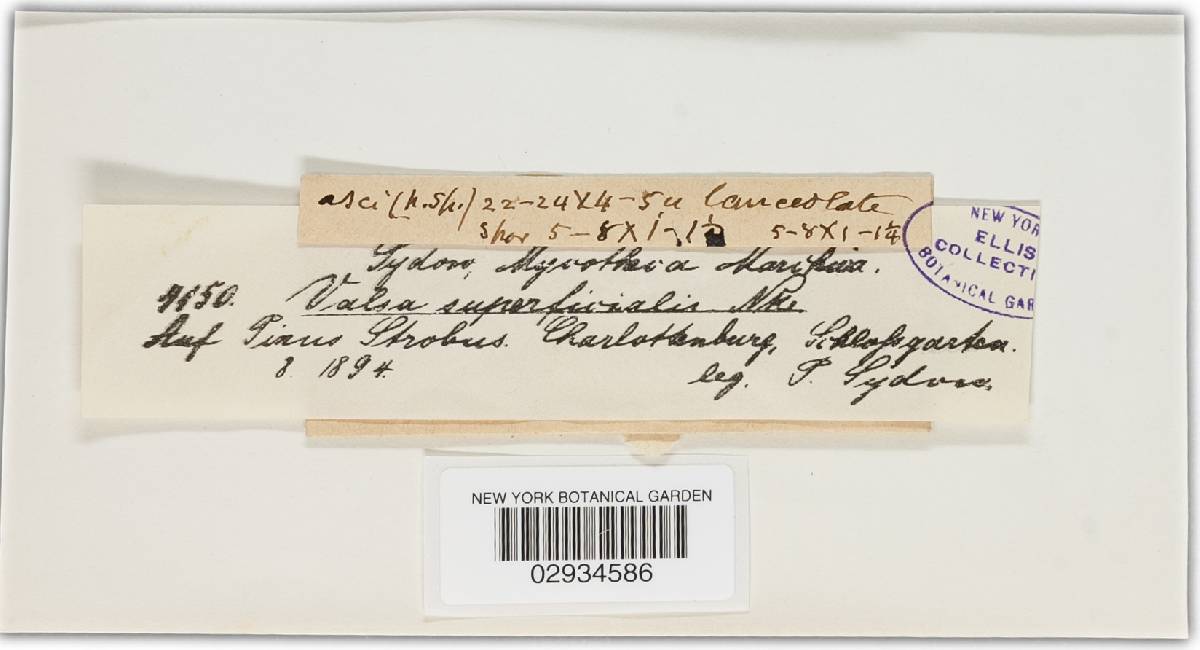 asci (p. sp.) 22-24X4-5 u lanceolate
Spor 5-8X1-1½ 5-8X1-1¼
Sydow, Mycotheca Marchica.
4150. Valsa superficialis Nke.
Auf Pinus Strobus. Charlottenburg, Schloßgarten.
8. 1894. leg. P. Sydow.
NEW YOR
ELLIS
COLLECTI
BOTANICAL GAR
NEW YORK BOTANICAL GARDEN
02934586